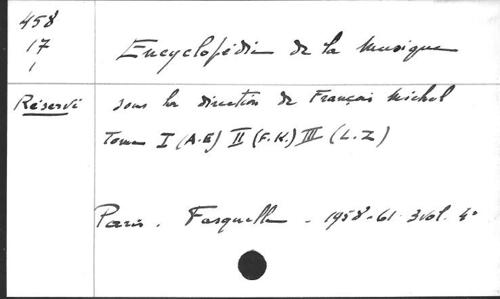 458
17
1
Encyclopédie de la Musique
Réservé
sous la direction de François Michel
Tomes I (A.E) II (F.K.) III (L.Z)
Paris. Fasquelle - 1958-61 3 vol. 4°